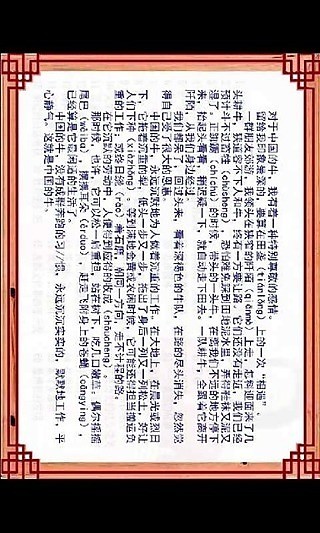 对于中国的牛，我有着一种特别尊敬的感情。
留给我印象最深的，要算在田垄（tiánlǒng）上的一次“相遇”
一群朋友郊游，我领头在狭窄的阡陌（qiānmò）上走，怎料迎面来了几
头耕牛，狭道容不下人和牛，终有一方要让路。它们还没有走近，我们已经
预计斗不过畜牲（chùsheng），恐怕难免踩到田地泥水里，弄得鞋袜又泥又
湿了。正踟蹰（chíchú）的时候，带头的一头牛，在离我们不远的地方停下
来，抬起头看看，稍迟疑一下，就自动走下田去。一队耕牛，全跟着它离开
阡陌，从我们身边经过。
我们都呆了，回过头来，看着深褐色的牛队，在路的尽头消失，忽然觉
得自己受了很大的恩惠。
中国的牛，永远沉默地为人做着沉重的工作。在大地上，在晨光或烈日
下，它拖着沉重的犁，低头一步又一步，拖出了身后一列又一列松土，好让
人们下种（xiàzhǒng）。等到满地金黄或农闲时候，它可能还得担当搬运负
重的工作；或终日绕（rào）着石磨，朝同一方向，走不计程的路。
在它沉默的劳动中，人便得到应得的收成（shōucheng）。
那时候，也许，它可以松一肩重担，站在树下，吃几口嫩草。偶尔摇摇
尾巴（wěiba），摆摆耳朵（ěrduo），赶走飞附身上的苍蝇（cāngying），
已经算是它最闲适的生活了。
中国的牛，没有成群奔跑的习//惯，永远沉沉实实的，默默地工作，平
心静气。这就是中国的牛